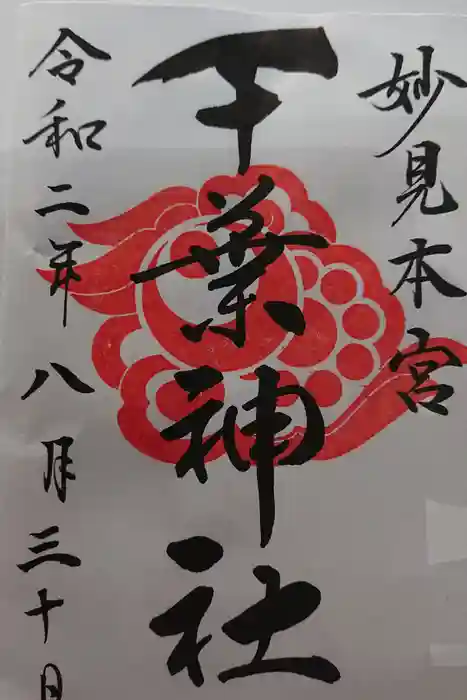 妙見本宮
千葉神社
令和二年八月三十日